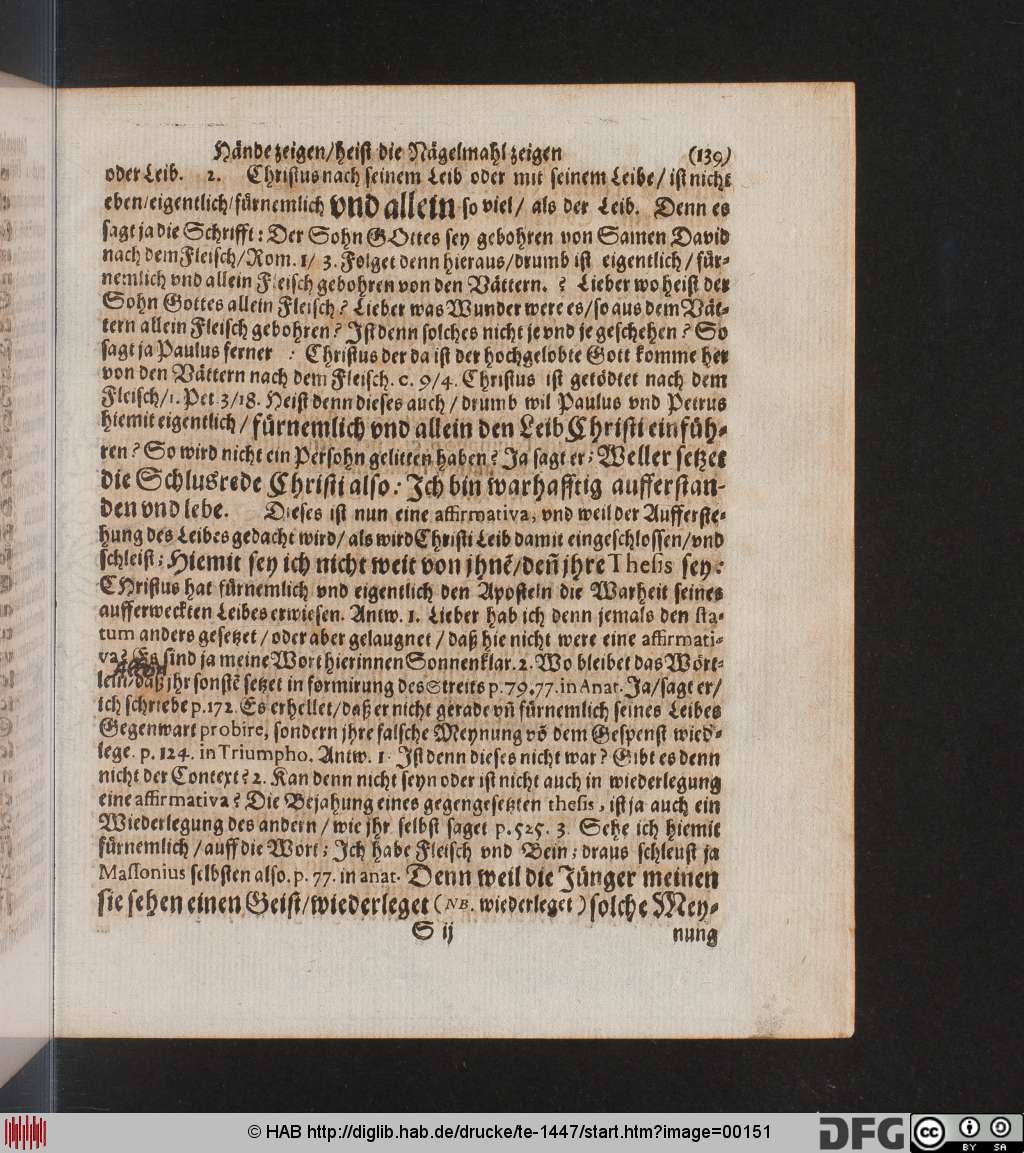 Hände zeigen/heist die Nägelmahl zeigen (139)
oder Leib. 2. Christus nach seinem Leib oder mit seinem Leibe/ ist nicht
eben/eigentlich/fürnemlich vnd allein so viel/ als der Leib. Denn es
sagt ja die Schrifft: Der Sohn GOttes sey gebohren von Samen David
nach dem Fleisch/Rom. 1/ 3. Folget denn hieraus/drumb ist eigentlich/ für-
nemlich vnd allein Fleisch gebohren von den Vättern. ? Lieber wo heist der
Sohn Gottes allein Fleisch? Lieber was Wunder were es/so aus dem Vät-
tern allein Fleisch gebohren? Ist denn solches nicht je vnd je geschehen? So
sagt ja Paulus ferner : Christus der da ist der hochgelobte Gott komme her
von den Vättern nach dem Fleisch. c. 9/4. Christus ist getödtet nach dem
Fleisch/1. Pet 3/18. Heist denn dieses auch/ drumb wil Paulus vnd Petrus
hiemit eigentlich/ fürnemlich vnd allein den Leib Christi einfüh-
ren? So wird nicht ein Persohn gelitten haben? Ja sagt er; Weller setzet
die Schlusrede Christi also: Ich bin warhafftig aufferstan-
den vnd lebe. Dieses ist nun eine affirmativa, vnd weil der Aufferste-
hung des Leibes gedacht wird/ als wird Christi Leib damit eingeschlossen/vnd
schleist; Hiemit sey ich nicht weit von jhnē/den̄ jhre Thesis sey:
CHristus hat fürnemlich vnd eigentlich den Aposteln die Warheit seines
aufferweckten Leibes erwiesen. Antw. 1. Lieber hab ich denn jemals den sta-
tum anders gesetzet/ oder aber gelaugnet/ daß hie nicht were eine affirmati-
va? Es sind ja meine Wort hierinnen Sonnenklar. 2. Wo bleibet das Wört-
lein/daß jhr sonstē setzet in formirung des Streits p. 79. 77. in Anat. Ja/sagt er/
ich schriebe p. 172. Es erhellet/daß er nicht gerade vn̄ fürnemlich seines Leibes
Gegenwart probire, sondern jhre falsche Meynung vō dem Gespenst wied-
lege. p. 124. in Triumpho. Antw. 1. Ist denn dieses nicht war? Gibt es denn
nicht der Context? 2. Kan denn nicht seyn oder ist nicht auch in wiederlegung
eine affirmativa? Die Bejahung eines gegengesetzten thesis, ist ja auch ein
Wiederlegung des andern/ wie jhr selbst saget p. 525. 3. Sehe ich hiemit
fürnemlich/auff die Wort; Ich habe Fleisch vnd Bein; draus schleust ja
Massonius selbsten also. p. 77. in anat. Denn weil die Jünger meinen
sie sehen einen Geist/wiederleget (NB. wiederleget) solche Mey-
S ij nung
© HAB http://diglib.hab.de/drucke/te-1447/start.htm?image=00151
DFG
cc BY SA